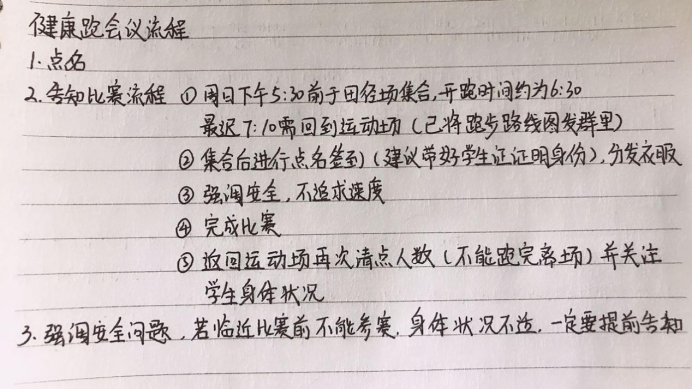 健康跑会议流程
1.点名
2.告知比赛流程 ①周日下午5:30前于田径场集合,开跑时间约为6:30
最迟7:10需回到运动场(已将跑步路线图发群里)
②集合后进行点名签到(建议带好学生证证明身份),分发衣服
③强调安全,不追求速度
④完成比赛
⑤返回运动场再次清点人数(不能跑完离场)并关注
学生身体状况
3.强调安全问题,若临近比赛前不能参赛,身体状况不适,一定要提前告知